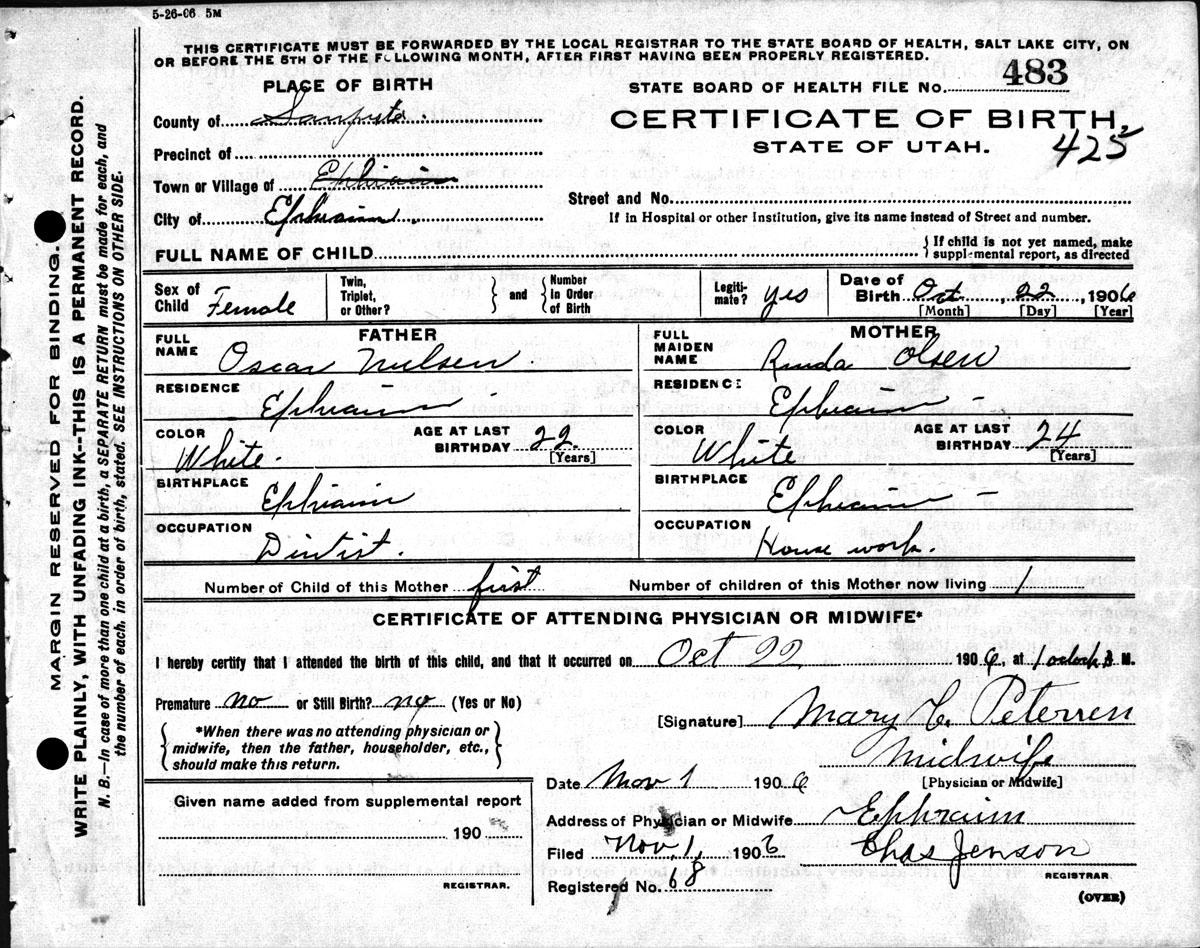 5-26-06 5M
THIS CERTIFICATE MUST BE FORWARDED BY THE LOCAL REGISTRAR TO THE STATE BOARD OF HEALTH, SALT LAKE CITY, ON
OR BEFORE THE 5TH OF THE FOLLOWING MONTH, AFTER FIRST HAVING BEEN PROPERLY REGISTERED.
PLACE OF BIRTH
STATE BOARD OF HEALTH FILE No. 483
County of Sanpete.
CERTIFICATE OF BIRTH,
Precinct of
STATE OF UTAH. 425
Town or Village of Ephraim
Street and No.
City of Ephraim.
If in Hospital or other Institution, give its name instead of Street and number.
FULL NAME OF CHILD
{ If child is not yet named, make
supplemental report, as directed
Sex of Child Female
Twin, Triplet, or Other?
} and { Number In Order of Birth
Legitimate? yes
Date of Birth Oct, 22, 1906
[Month] [Day] [Year]
FATHER
FULL NAME Oscar Nielsen
RESIDENCE
Ephraim.
COLOR White.
AGE AT LAST BIRTHDAY 22.
[Years]
BIRTHPLACE
Ephraim
OCCUPATION
Dintist.
MOTHER
FULL MAIDEN NAME Olsen
RESIDENCE
Ephraim -
COLOR White
AGE AT LAST BIRTHDAY 24
[Years]
BIRTHPLACE
Ephraim -
OCCUPATION
House work.
Number of Child of this Mother first
Number of children of this Mother now living 1
CERTIFICATE OF ATTENDING PHYSICIAN OR MIDWIFE*
I hereby certify that I attended the birth of this child, and that it occurred on Oct 22 1906, at 1 oclock M.
Premature no or Still Birth? no (Yes or No)
[Signature] Mary C. Petersen
{ *When there was no attending physician or
midwife, then the father, householder, etc.,
should make this return. }
Midwife
[Physician or Midwife]
Date Nov 1 1906
Given name added from supplemental report
190
REGISTRAR.
Address of Physician or Midwife Ephraim
Filed Nov. 1, 1906
Chas Jenson
REGISTRAR
Registered No. 68
(OVER)
MARGIN RESERVED FOR BINDING.
WRITE PLAINLY, WITH UNFADING INK--THIS IS A PERMANENT RECORD.
N. B.—In case of more than one child at a birth, a SEPARATE RETURN must be made for each, and
the number of each, in order of birth, stated. SEE INSTRUCTIONS ON OTHER SIDE.